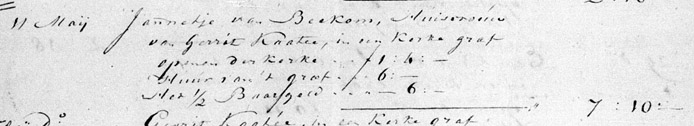 11 Maij Jannetje van Beekom, Huisvrouw
van Gerrit Kaatee, in een Kerke graf
openen der kerke - - 1:4:-
Huur van't graf - - 6:-
Het 1/2 Baargeld - - - 6:-
7:10:-
Gerrit Kaatée, in een Kerke graf